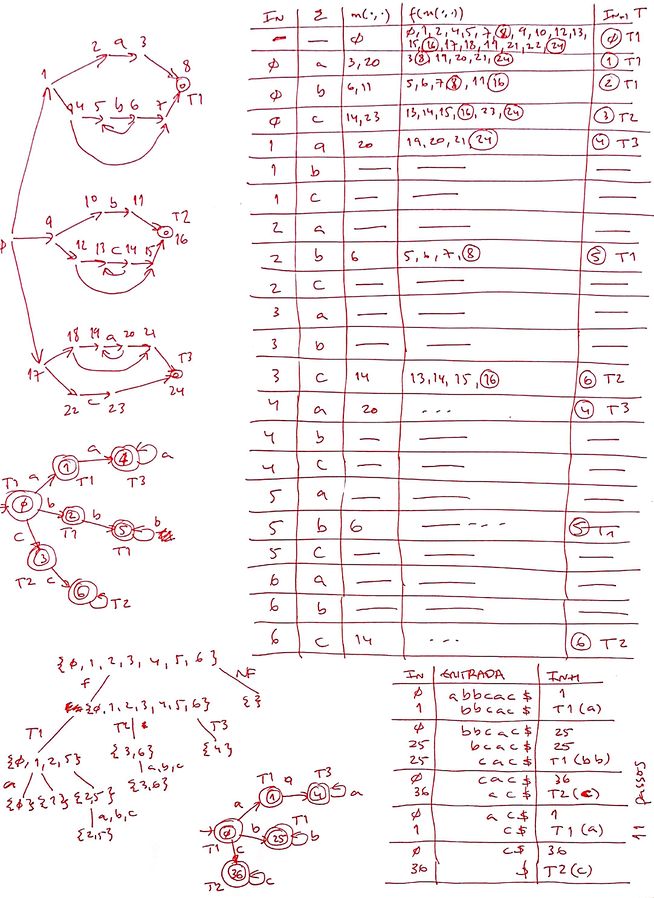 IN Σ m(·,·) f(m(·,·)) In+1 T
— — ∅ ∅,1,2,4,5,7,8,9,10,12,13,
15,16,17,18,19,21,22,24 ∅ T1
∅ a 3,20 3,8,19,20,21,24 1 T1
∅ b 6,11 5,6,7,8,11,16 2 T1
∅ c 14,23 13,14,15,16,23,24 3 T2
1 a 20 19,20,21,24 4 T3
1 b — — —
1 c — — —
2 a — — —
2 b 6 5,6,7,8 5 T1
2 c — — —
3 a — — —
3 b — — —
3 c 14 13,14,15,16 6 T2
4 a 20 ... 4 T3
4 b — — —
4 c — — —
5 a — — —
5 b 6 — --- 5 T1
5 c — — —
6 a — — —
6 b — — —
6 c 14 ... 6 T2
2 a 3
8
1
T1
4 5 b 6 7
10 b 11
9
T2
∅
16
12 13 c 14 15
18 19 a 20 21
T3
17
24
22 c 23
a
T1 a 1 4 a
T1 T3
∅ b 2 b 5 b
T1 T1
c
3
T2 c
6
T2
{∅,1,2,3,4,5,6}
f NF
{∅,1,2,3,4,5,6} { }
T1 T2 T3
{∅,1,2,5} {3,6} {4}
a a,b,c
{∅} {1} {2,5} {3,6}
a,b,c
{2,5}
T1 a T3
a 1 4 a
∅ b 25 b
T1 T1
c
36 c
T2
IN ENTRADA IN+1
∅ abbcac$ 1
1 bbcac$ T1(a)
∅ bbcac$ 25
25 bcac$ 25
25 cac$ T1(bb)
∅ cac$ 36
36 ac$ T2(c)
∅ ac$ 1
1 c$ T1(a)
∅ c$ 36
36 $ T2(c)
11 passos